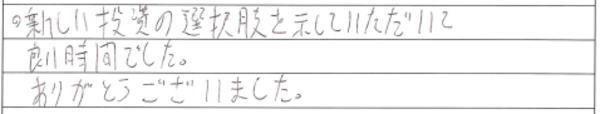 ○新しい投資の選択肢を示していただいて
良い時間でした。
ありがとうございました。